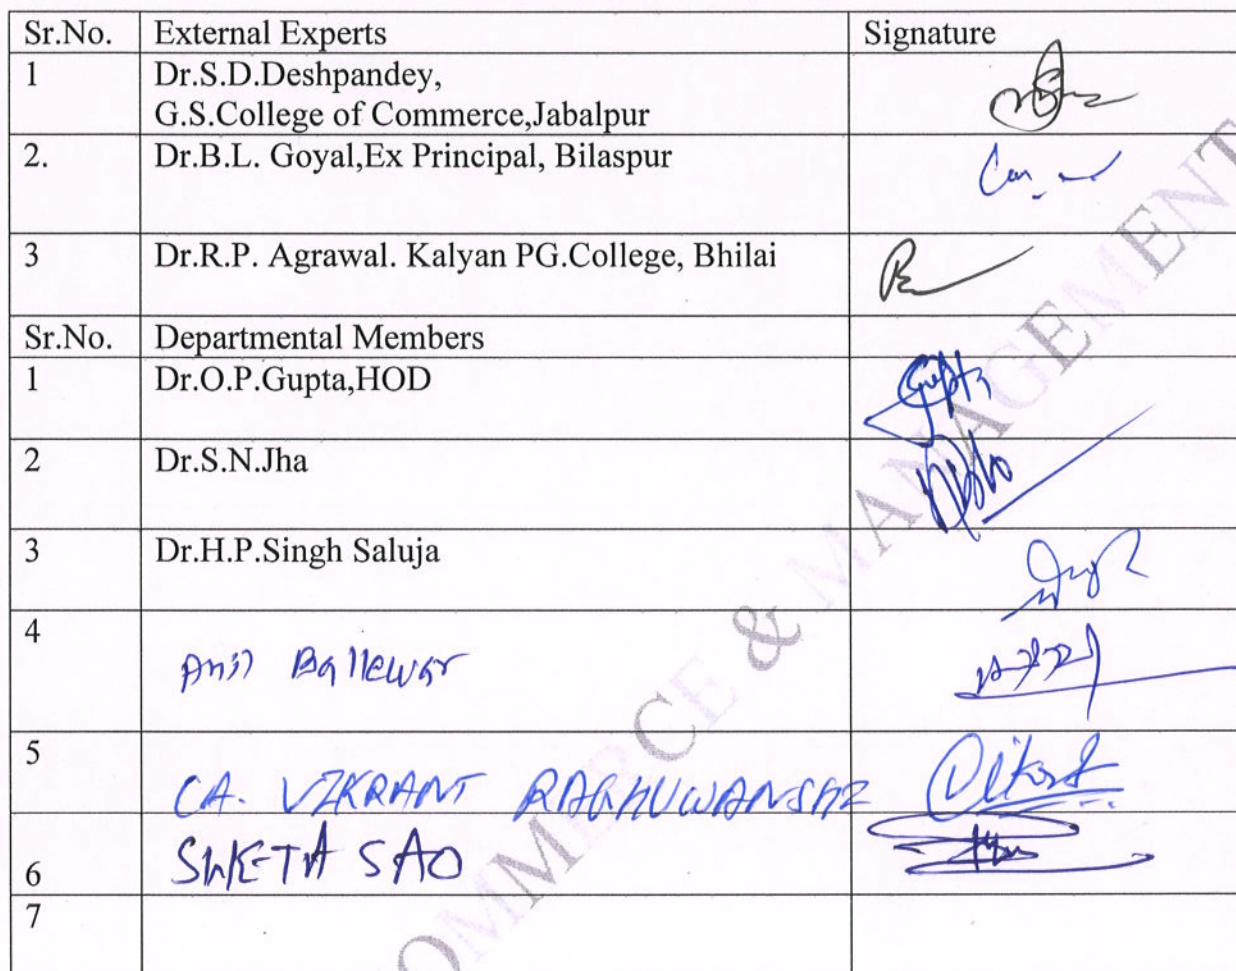 Sr.No. External Experts Signature
1 Dr.S.D.Deshpandey,
G.S.College of Commerce,Jabalpur
2. Dr.B.L. Goyal,Ex Principal, Bilaspur
3 Dr.R.P. Agrawal. Kalyan PG.College, Bhilai
Sr.No. Departmental Members
1 Dr.O.P.Gupta,HOD Gupta
2 Dr.S.N.Jha
3 Dr.H.P.Singh Saluja
4 Anil Ballewar
5 CA. VIKRANT RAGHUWANSHI
6 SWETA SAO
7
OMMERCE & MANAGEMENT